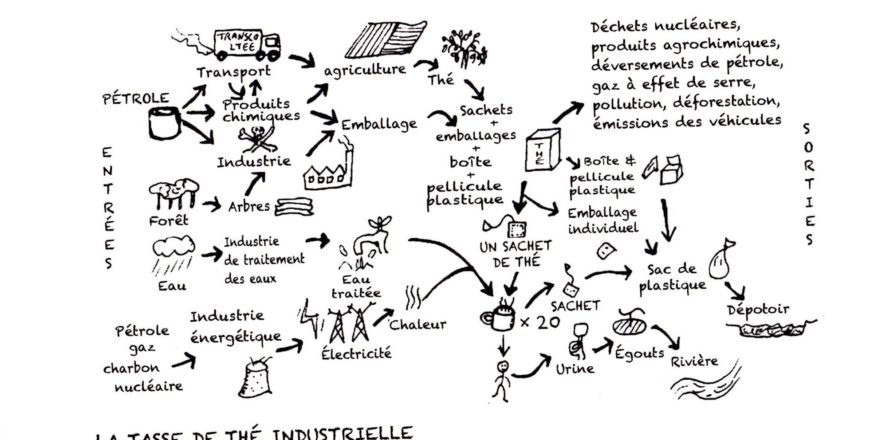 TRANSCO
LTÉE
Transport
PÉTROLE
Produits
chimiques
Industrie
agriculture
Emballage
Thé
Sachets
+
emballages
+
boîte
+
pellicule
plastique
THÉ
Déchets nucléaires,
produits agrochimiques,
déversements de pétrole,
gaz à effet de serre,
pollution, déforestation,
émissions des véhicules
ENTRÉES
SORTIES
Forêt
Arbres
Boîte &
pellicule
plastique
Emballage
individuel
UN SACHET
DE THÉ
Eau
Industrie
de traitement
des eaux
Eau
traitée
SACHET
Sac de
plastique
Dépotoir
Pétrole
gaz
charbon
nucléaire
Industrie
énergétique
Électricité
Chaleur
× 20
Urine
Égouts
Rivière
LA TASSE DE THÉ INDUSTRIELLE